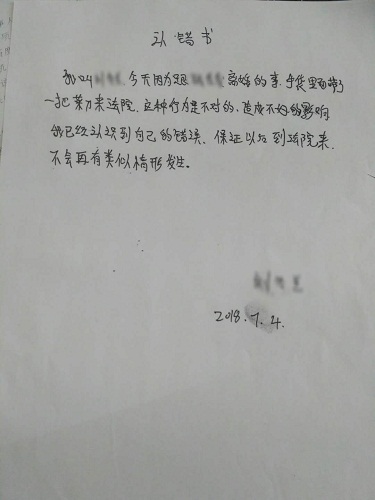 认错书
我叫 今天因为跟 离婚的事,手袋里面带了
一把菜刀来法院,这种行为是不对的,造成不好的影响
我已经认识到自己的错误,保证以后到法院来,
不会再有类似情形发生。
2018.7.4.